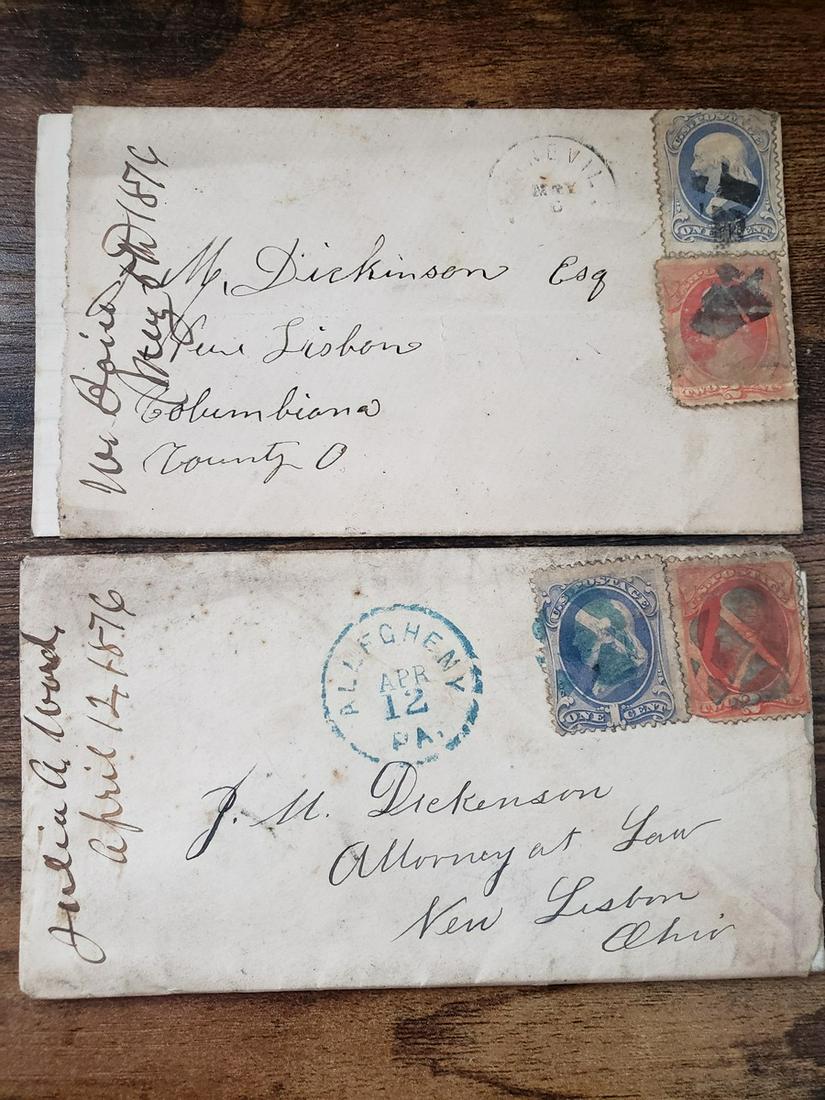 May 6th 1876
NEVIL
MAY
6
U.S. POSTAGE
ONE CENT
TWO CENTS
M. Dickinson Esq
New Lisbon
Columbiana
County O
Julia A. Ward,
April 12, 1876
ALLEGHENY
APR
12
PA.
U.S. POSTAGE
ONE 1 CENT
U.S. POSTAGE
J. M. Dickenson
Attorney at Law
New Lisbon
Ohio